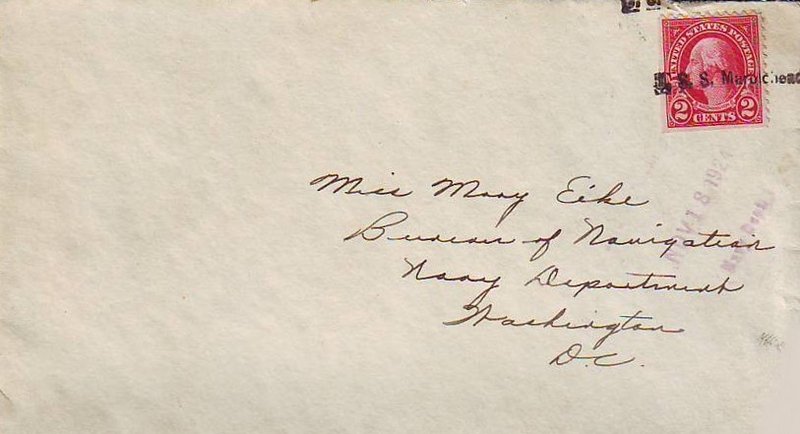 UNITED STATES POSTAGE
S. S. Marblehead
2 CENTS 2
NOV 18 1924
Navy Dept.
Miss Mary Eike
Bureau of Navigation
Navy Department
Washington
D.C.